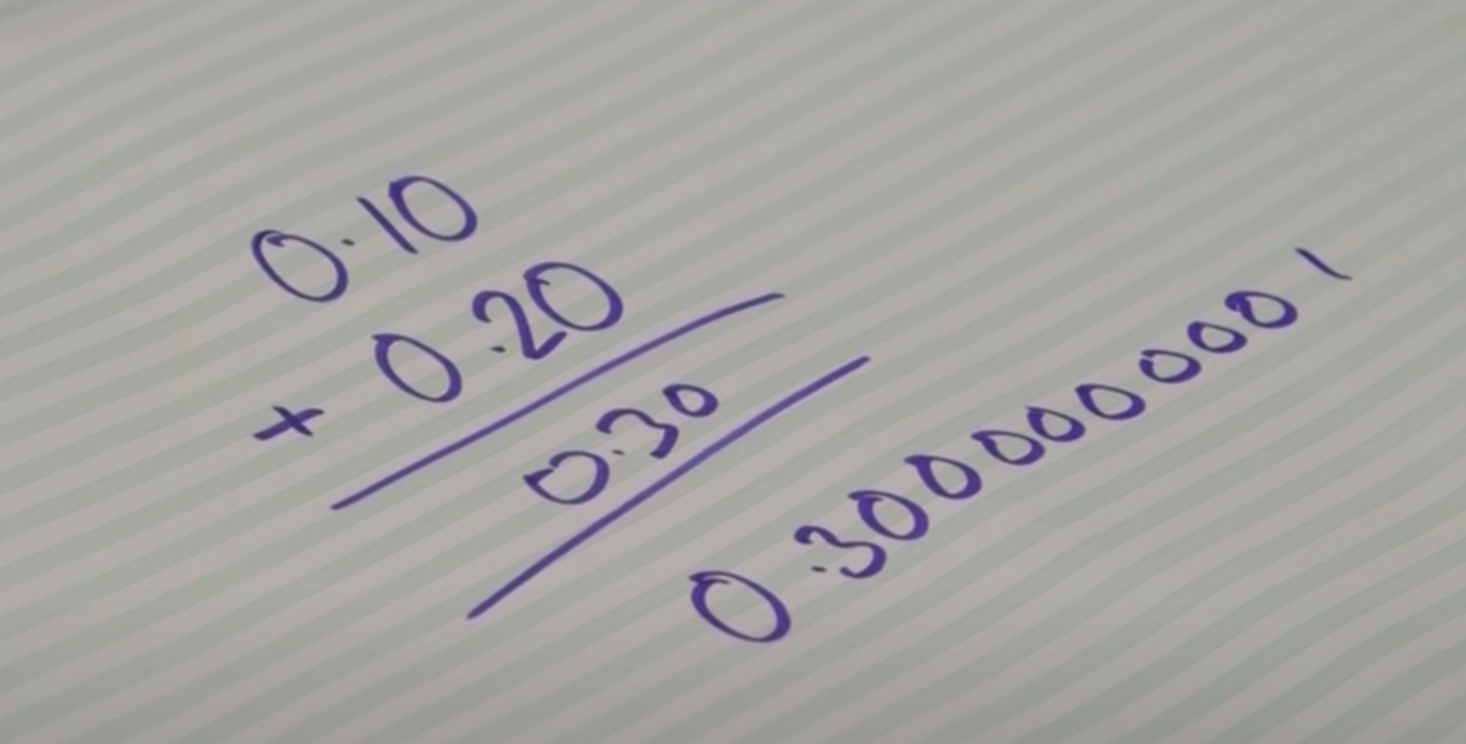 0.10
+ 0.20
0.30
0.3000000001